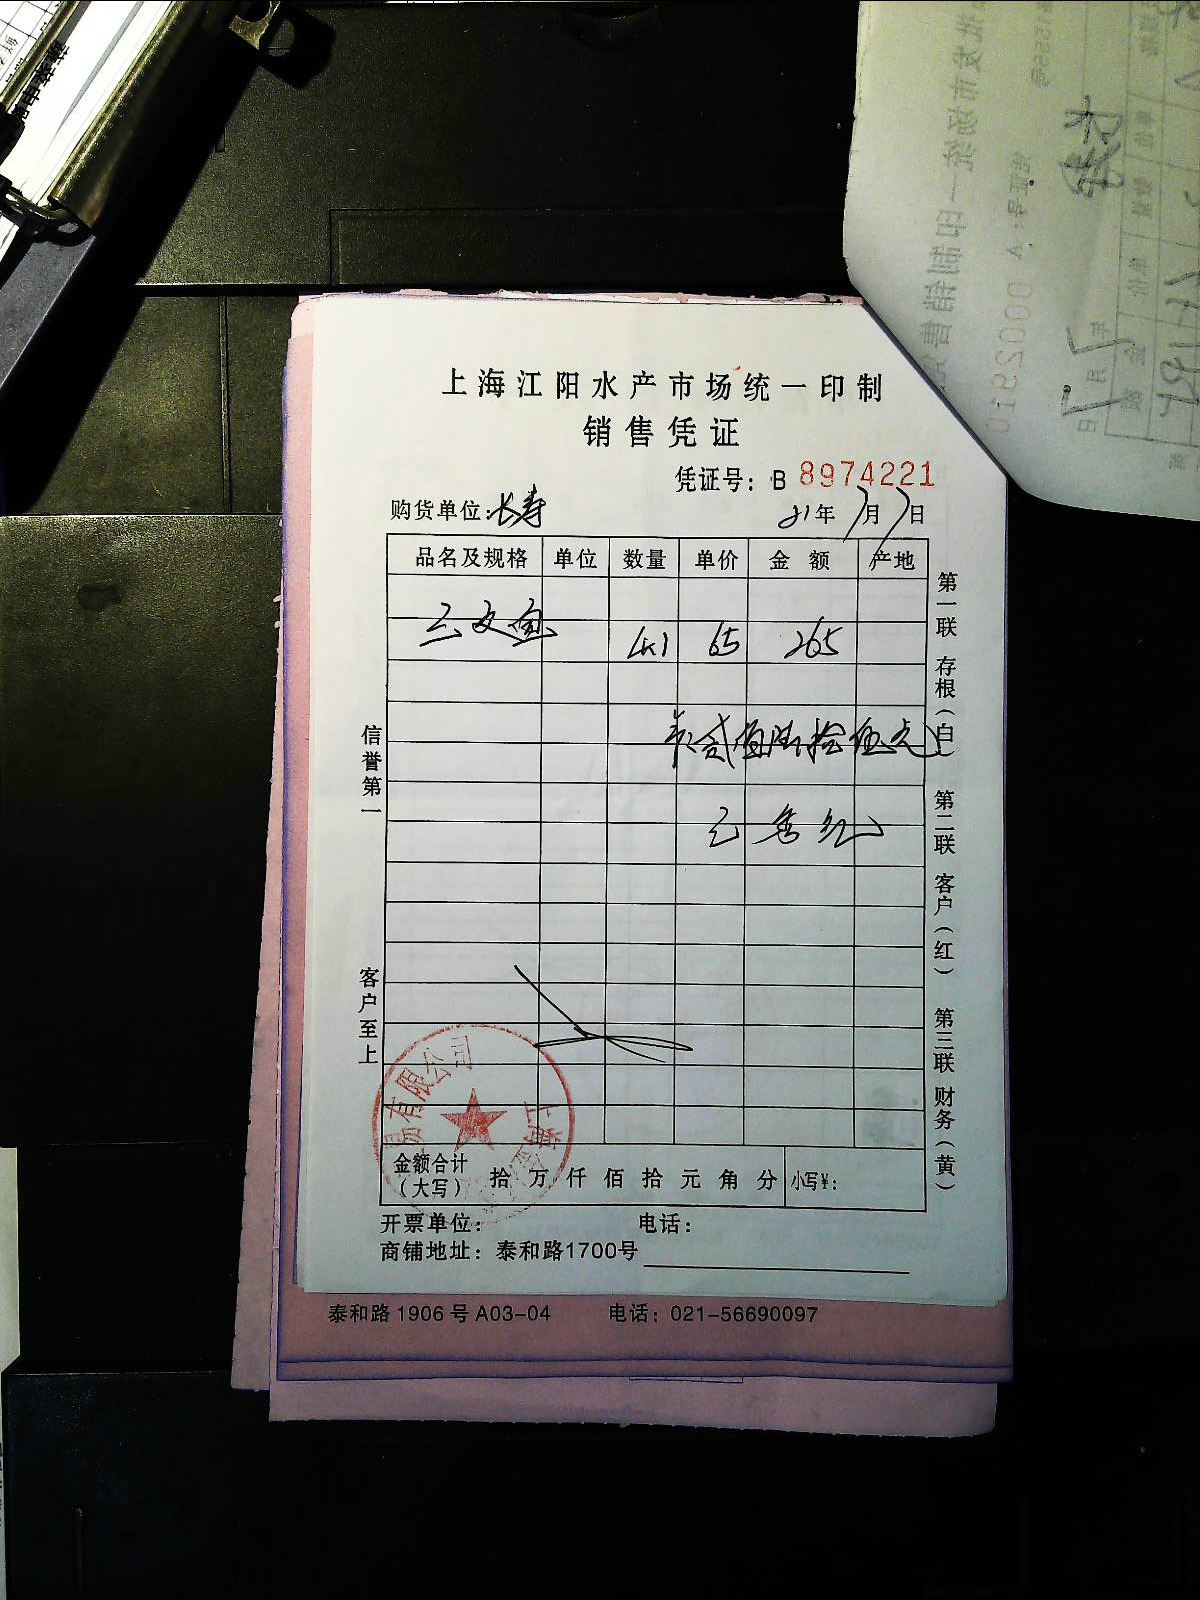 上海江阳水产市场统一印制
销售凭证
凭证号：B 8974221
购货单位：长寿 21年7月7日
品名及规格 单位 数量 单价 金额 产地
三文鱼 4.1 65 265
贰佰陆拾伍元
信誉第一
客户至上
第一联 存根（白） 第二联 客户（红） 第三联 财务（黄）
易有限公司
上海
金额合计（大写） 拾 万 仟 佰 拾 元 角 分 小写¥：
开票单位： 电话：
商铺地址：泰和路1700号
泰和路1906号A03-04 电话：021-56690097